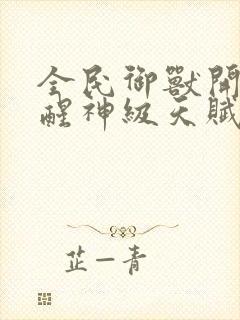 全民御獸開
醒神級天賦
芷一青